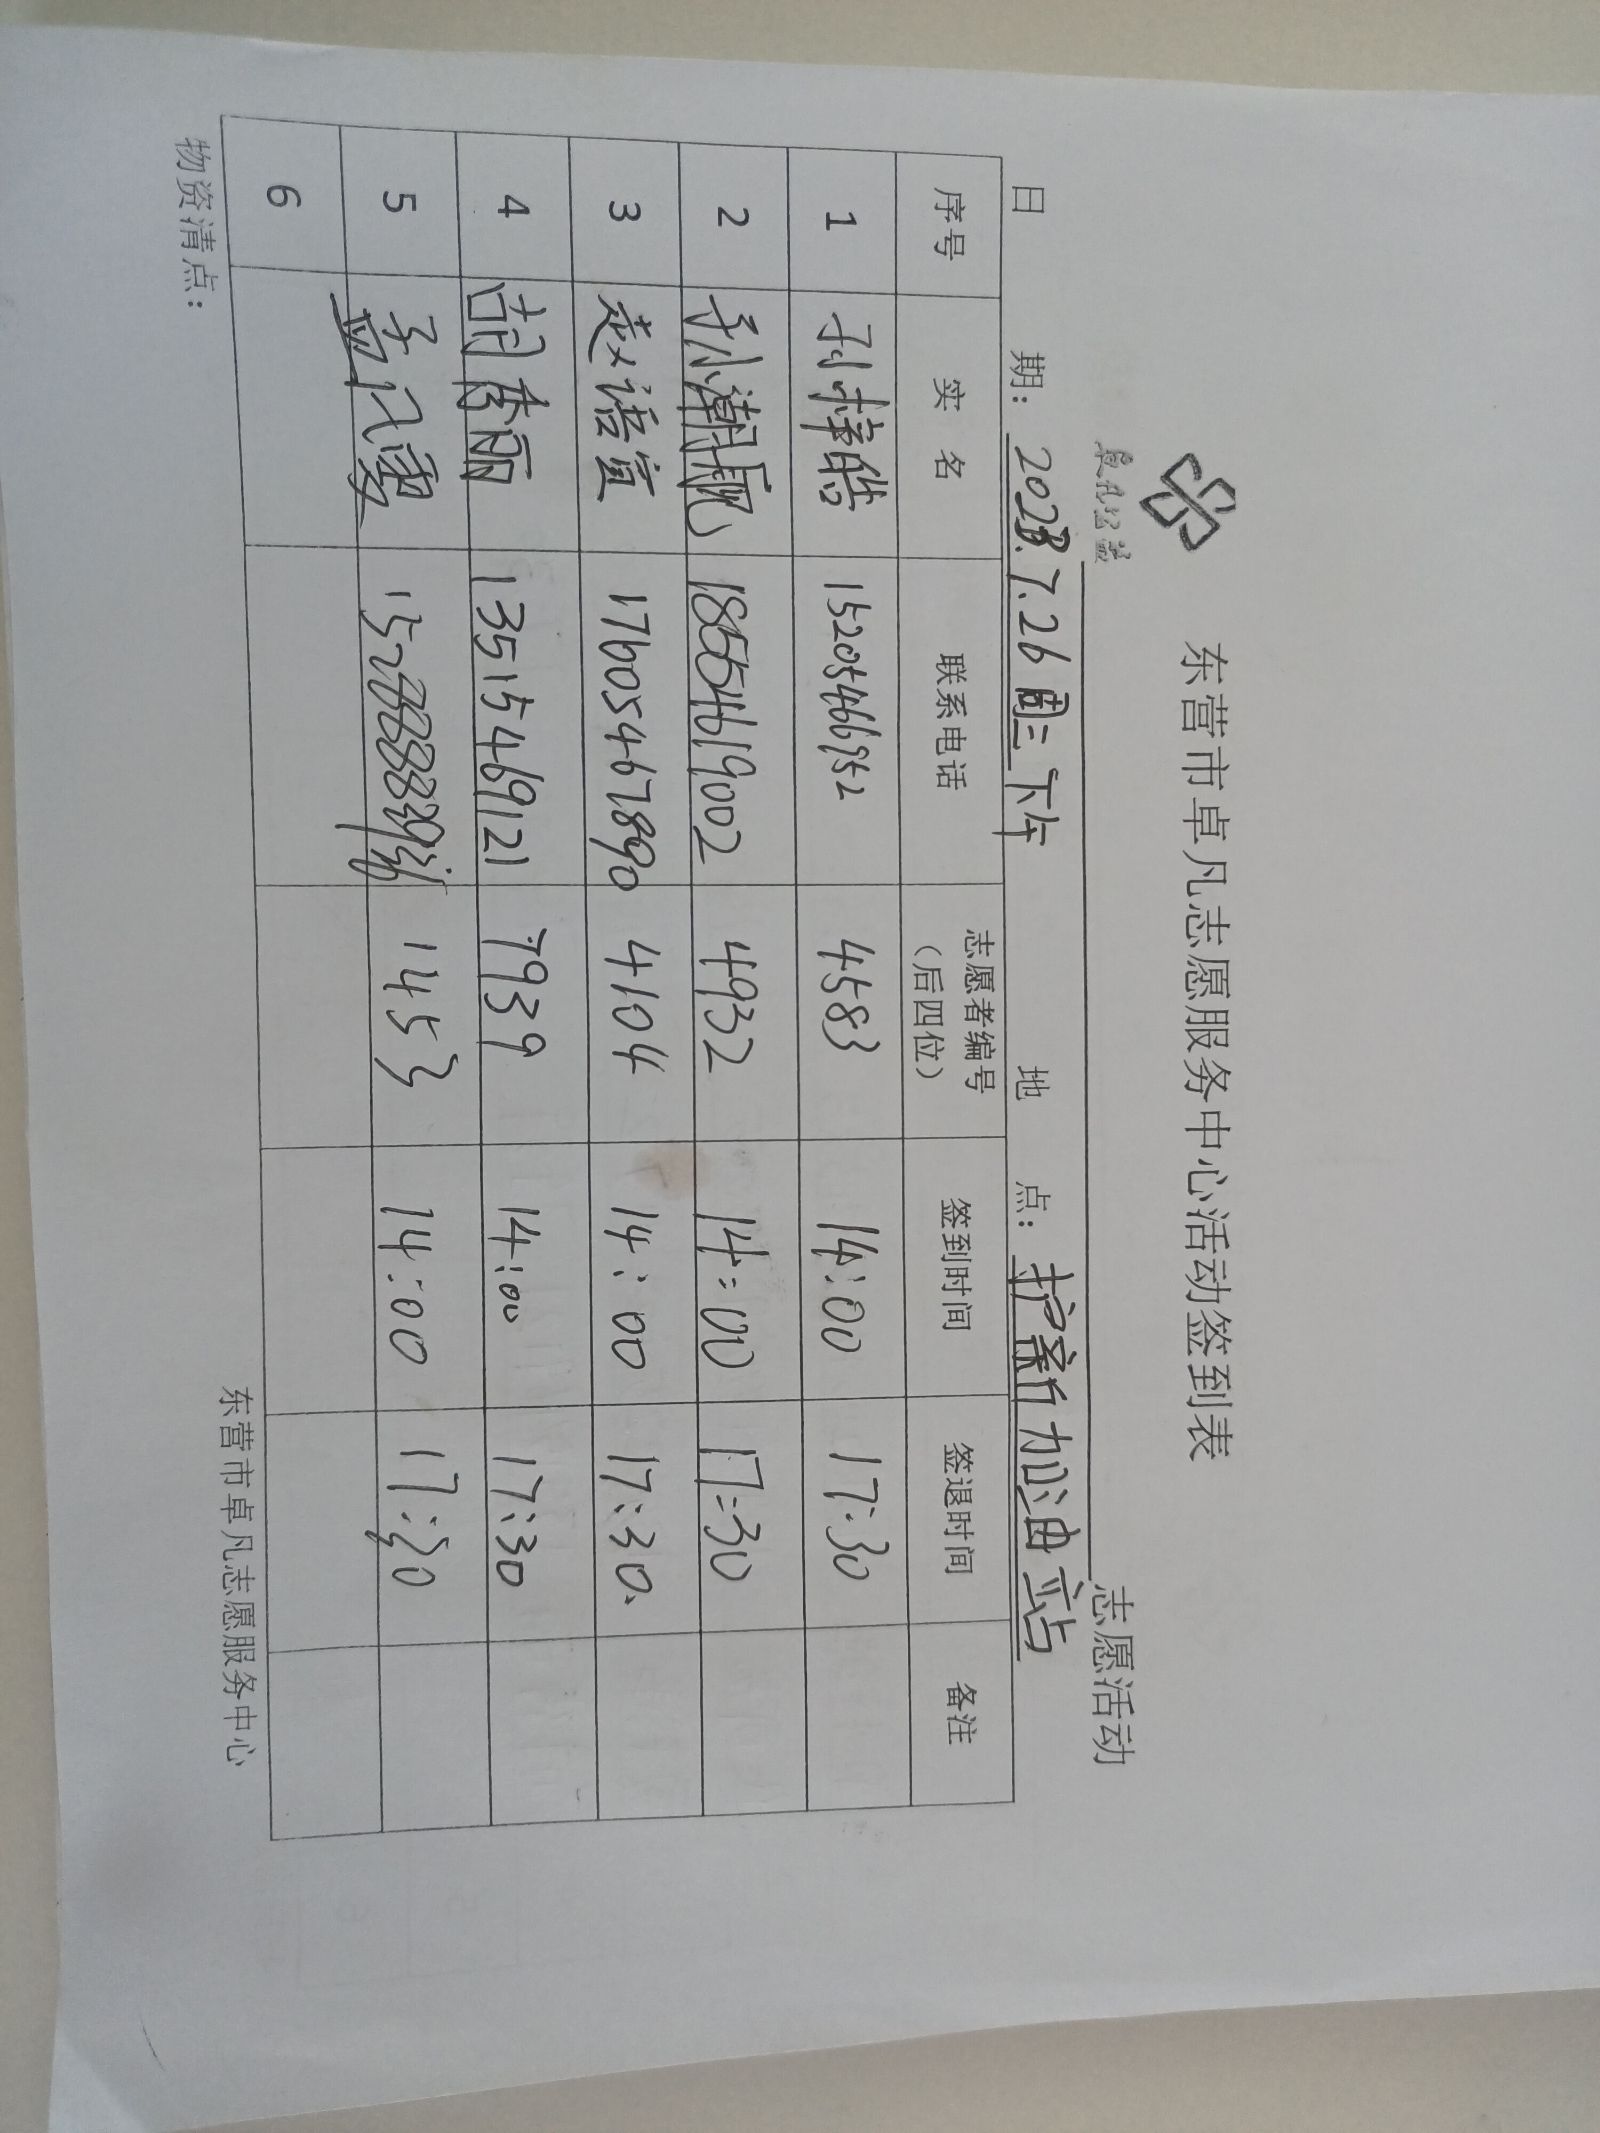 东营市卓凡志愿服务中心活动签到表
志愿活动
日 期: 2023.7.26 周三 下午 地 点: 护新加油站
序号 实 名 联系电话 志愿者编号（后四位） 签到时间 签退时间 备注
1 孙梓皓 15205466952 4583 14:00 17:30
2 孙潮 18554619002 4932 14:00 17:30
3 赵语萱 17605467890 4104 14:00 17:30.
4 胡秀丽 13515469121 7939 14:00 17:30
5 孟 1453 14:00 17:30
6
物资清点：
东营市卓凡志愿服务中心